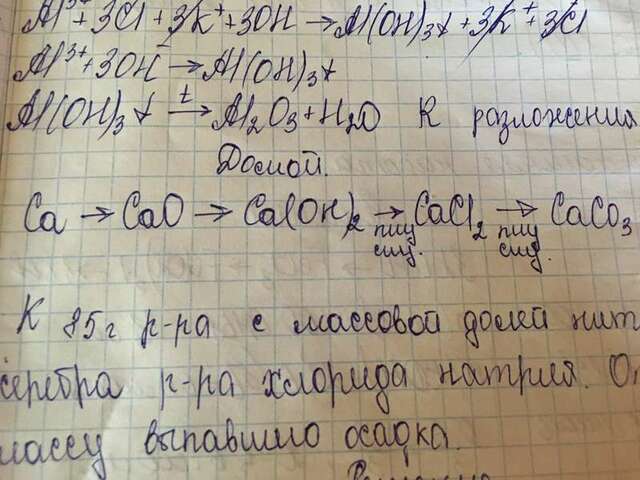 Al³⁺+3Cl+3K⁺+3OH→Al(OH)₃↓+3K⁺+3Cl
Al³⁺+3OH⁻→Al(OH)₃↓
Al(OH)₃↓ t→ Al₂O₃+H₂O R разложения
Домой.
Ca → CaO → Ca(OH)₂ → CaCl₂ → CaCO₃
пиу сиу. пиу сиу.
К 85г р-ра с массовой долей нит
серебра р-ра хлорида натрия. О
массу выпавшио осадка.